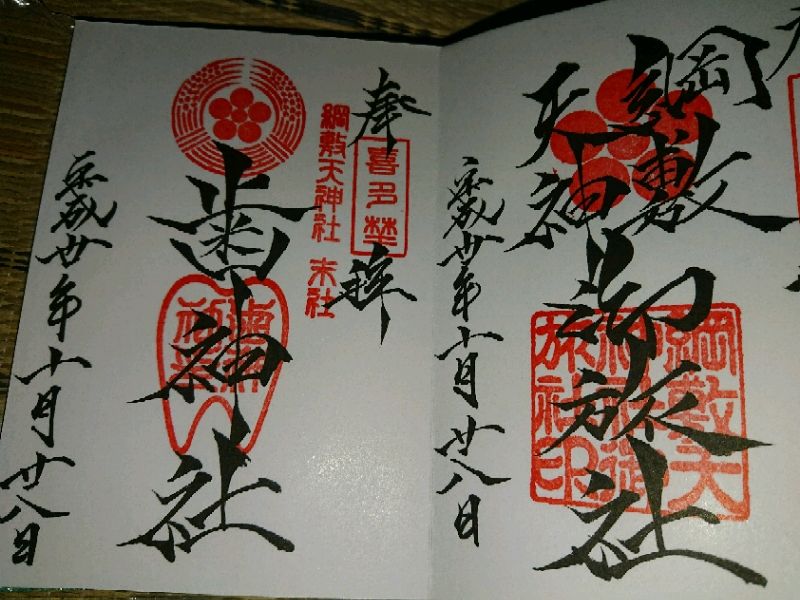 綱敷
天神
御旅社
綱敷天
神社御
旅社印
平成廿年十月廿八日
奉拝
喜多埜
綱敷天神社 末社
歯神社
平成廿年十月廿八日